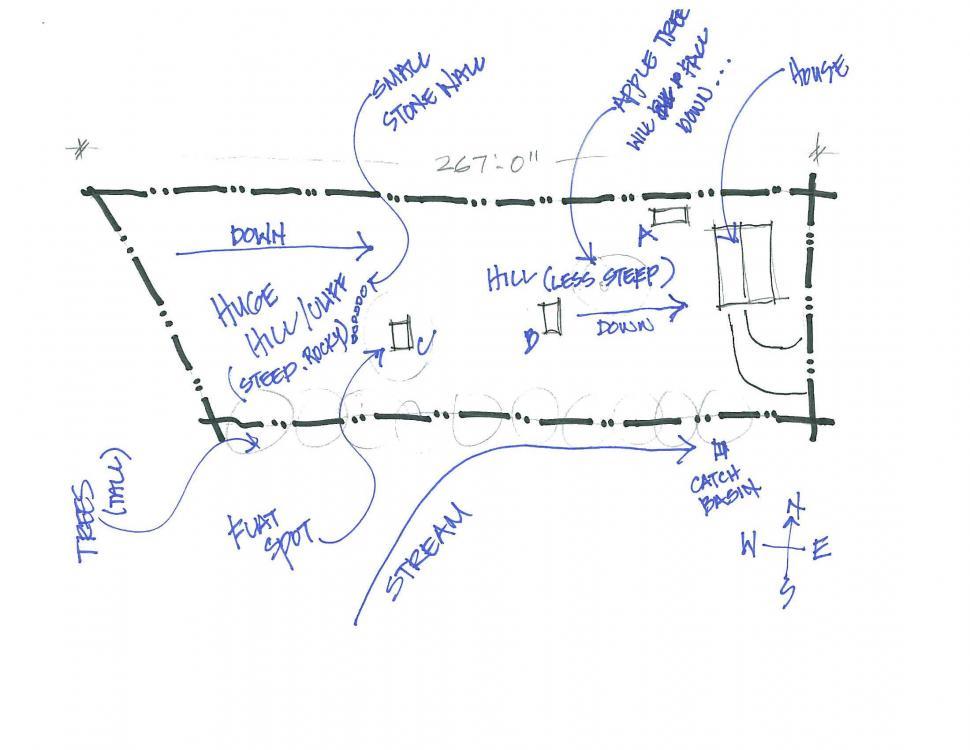 SMALL
STONE WALL
APPLE TREE
WILL FALL
DOWN...
HOUSE
267'-0"
DOWN
A
HUGE
HILL/CLIFF
(STEEP, ROCKY)
C
HILL (LESS STEEP)
B
DOWN
TREES
(TALL)
FLAT
SPOT
STREAM
CATCH
BASIN
N
W E
S